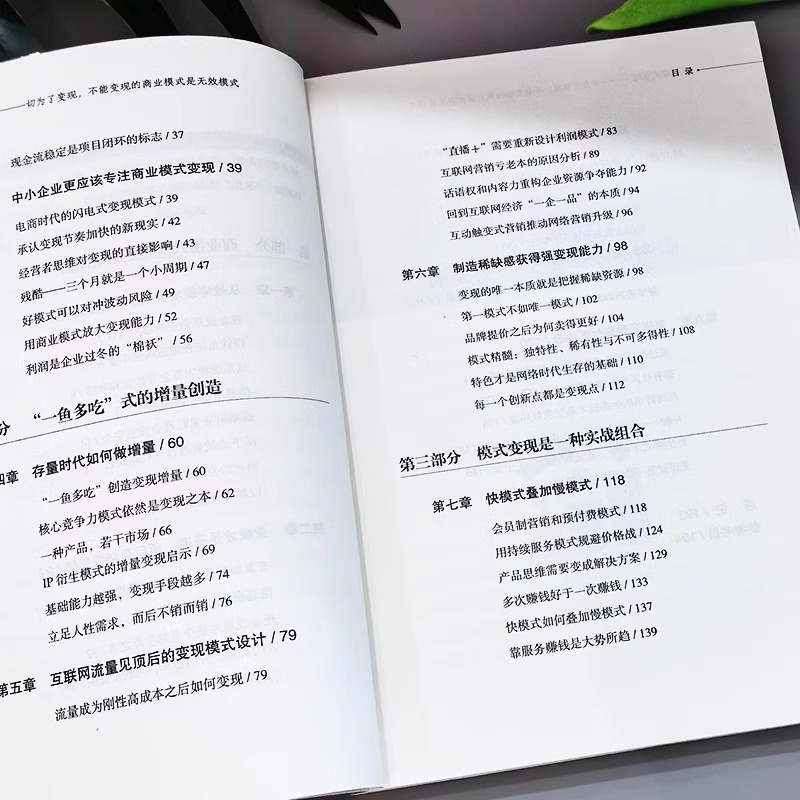 一切为了变现,不能变现的商业模式是无效模式
现金流稳定是项目闭环的标志 / 37
中小企业更应该专注商业模式变现 / 39
电商时代的闪电式变现模式 / 39
承认变现节奏加快的新现实 / 42
经营者思维对变现的直接影响 / 43
残酷——三个月就是一个小周期 / 47
好模式可以对冲波动风险 / 49
用商业模式放大变现能力 / 52
利润是企业过冬的“棉袄” / 56
分 “一鱼多吃”式的增量创造
四章 存量时代如何做增量 / 60
“一鱼多吃”创造变现增量 / 60
核心竞争力模式依然是变现之本 / 62
一种产品,若干市场 / 66
IP 衍生模式的增量变现启示 / 69
基础能力越强,变现手段越多 / 74
立足人性需求,而后不销而销 / 76
第五章 互联网流量见顶后的变现模式设计 / 79
流量成为刚性高成本之后如何变现 / 79
目 录
“直播+”需要重新设计利润模式 / 83
互联网营销亏老本的原因分析 / 89
话语权和内容力重构企业资源争夺能力 / 92
回到互联网经济“一企一品”的本质 / 94
互动触变式营销推动网络营销升级 / 96
第六章 制造稀缺感获得强变现能力 / 98
变现的唯一本质就是把握稀缺资源 / 98
第一模式不如唯一模式 / 102
品牌提价之后为何卖得更好 / 104
模式精髓:独特性、稀有性与不可多得性 / 108
特色才是网络时代生存的基础 / 110
每一个创新点都是变现点 / 112
第三部分 模式变现是一种实战组合
第七章 快模式叠加慢模式 / 118
会员制营销和预付费模式 / 118
用持续服务模式规避价格战 / 124
产品思维需要变成解决方案 / 129
多次赚钱好于一次赚钱 / 133
快模式如何叠加慢模式 / 137
靠服务赚钱是大势所趋 / 139